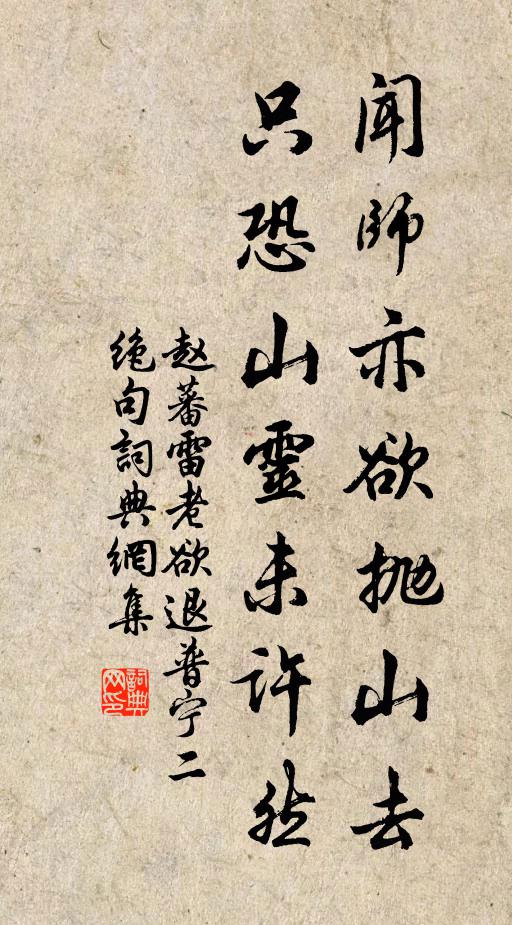 闻师亦欲抛山去
只恐山靈未许然
赵蕃雷老欲退普宁二
绝句詞典網集
詞典
网印